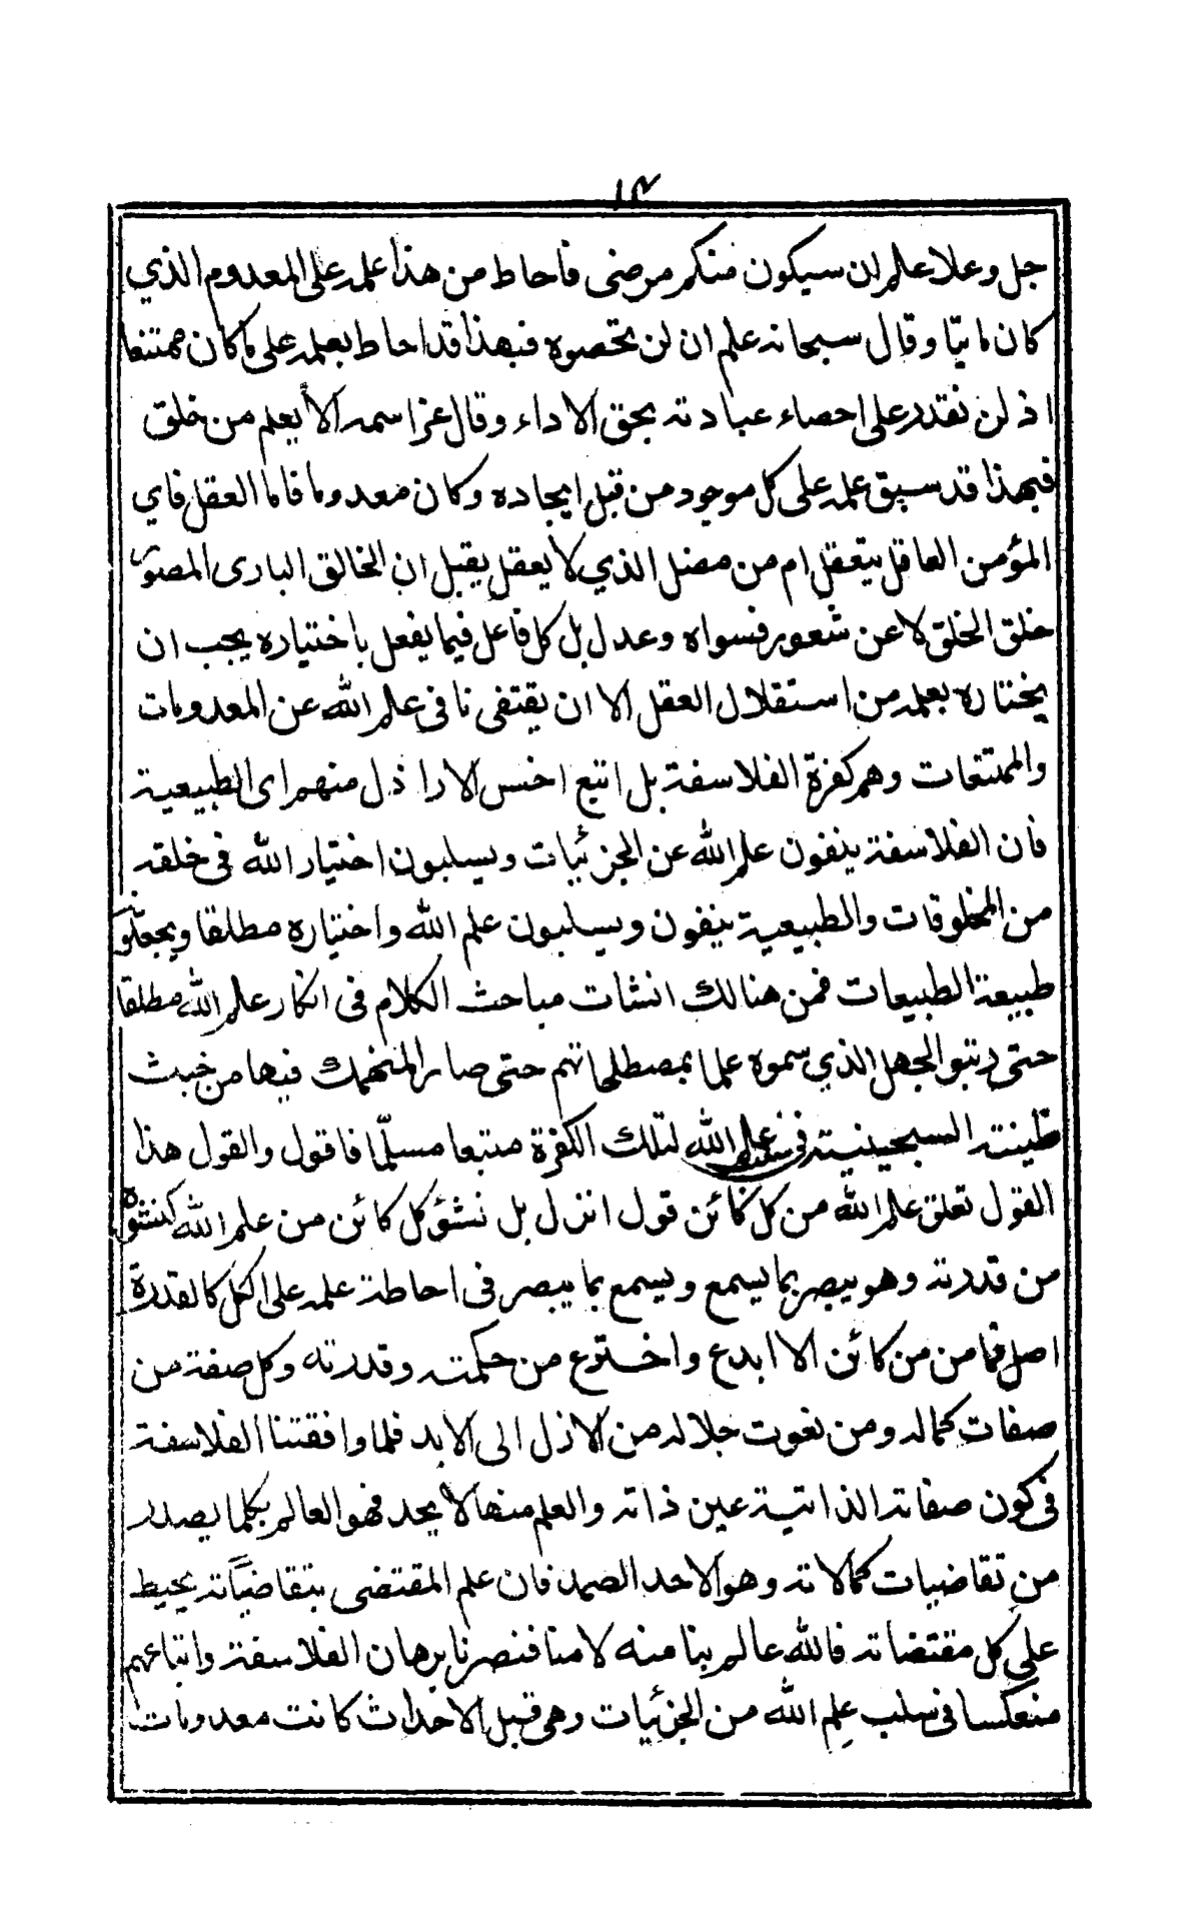 ١٣
جل وعلا علم ان سيكون منكم مرضى فاحاط من هذا علمه على المعدوم الذي
كان ماتيّا وقال سبحانه علم ان لن تحصوه فبهذا قد احاط بعلمه على ما كان ممتنعا
اذ لن نقدر على احصاء عبادته بحق الاداء وقال عز اسمه الا يعلم من خلق
فبهذا قد سبق علمه على كل موجود من قبل ايجاده وكان معدوما فاما العقل فاي
المؤمن العاقل يتعقل ام من مضل الذي لا يعقل يقبل ان الخالق البارى المصوّر
خلق الخلق لا عن شعور فسواه وعدل بل كل فاعل فيما يفعل باختياره يجب ان
يختاره بعلمه من استقلال العقل الا ان يقتفى نافى علم الله عن المعدومات
والممتنعات وهم كفرة الفلاسفة بل اتبع اخس الاراذل منهم اى الطبيعية
فان الفلاسفة ينفون علم الله عن الجزئيات ويسلبون اختيار الله فى خلقه
من المخلوقات والطبيعية ينفون ويسلبون علم الله واختياره مطلقا ويجعلون
طبيعة الطبيعات فمن هنالك انشات مباحث الكلام فى انكار علم الله مطلقا
حتى رتبوا الجهل الذي سموه علما بمصطلحاتهم حتى صار المنهمك فيها من خبث
طينته السجينية فى علم الله لتلك الكفرة متبعا مسلّما فاقول والقول هذا
القول تعلق علم الله من كل كائن قول انزل بل نشؤ كل كائن من علم الله كنشوه
من قدرته وهو يبصر بما يسمع ويسمع بما يبصر فى احاطة علمه على الكل كالقدرة
اصل فما من من كائن الا ابدع واخترع من حكمته وقدرته وكل صفة من
صفات كماله ومن نعوت جلاله من الازل الى الابد فلما وافقتنا الفلاسفة
فى كون صفاته الذاتية عين ذاته والعلم منها لا يحد فهو العالم بكلما يصدر
من تقاضيات كمالاته وهو الاحد الصمد فان علم المقتضى بتقاضياته يحيط
على كل مقتضاته فالله عالم بنا منه لا منا فنصرنا برهان الفلاسفة واتباعهم
منعكسا فى سلب علم الله من الجزئيات وهى قبل الاحداث كانت معدومات